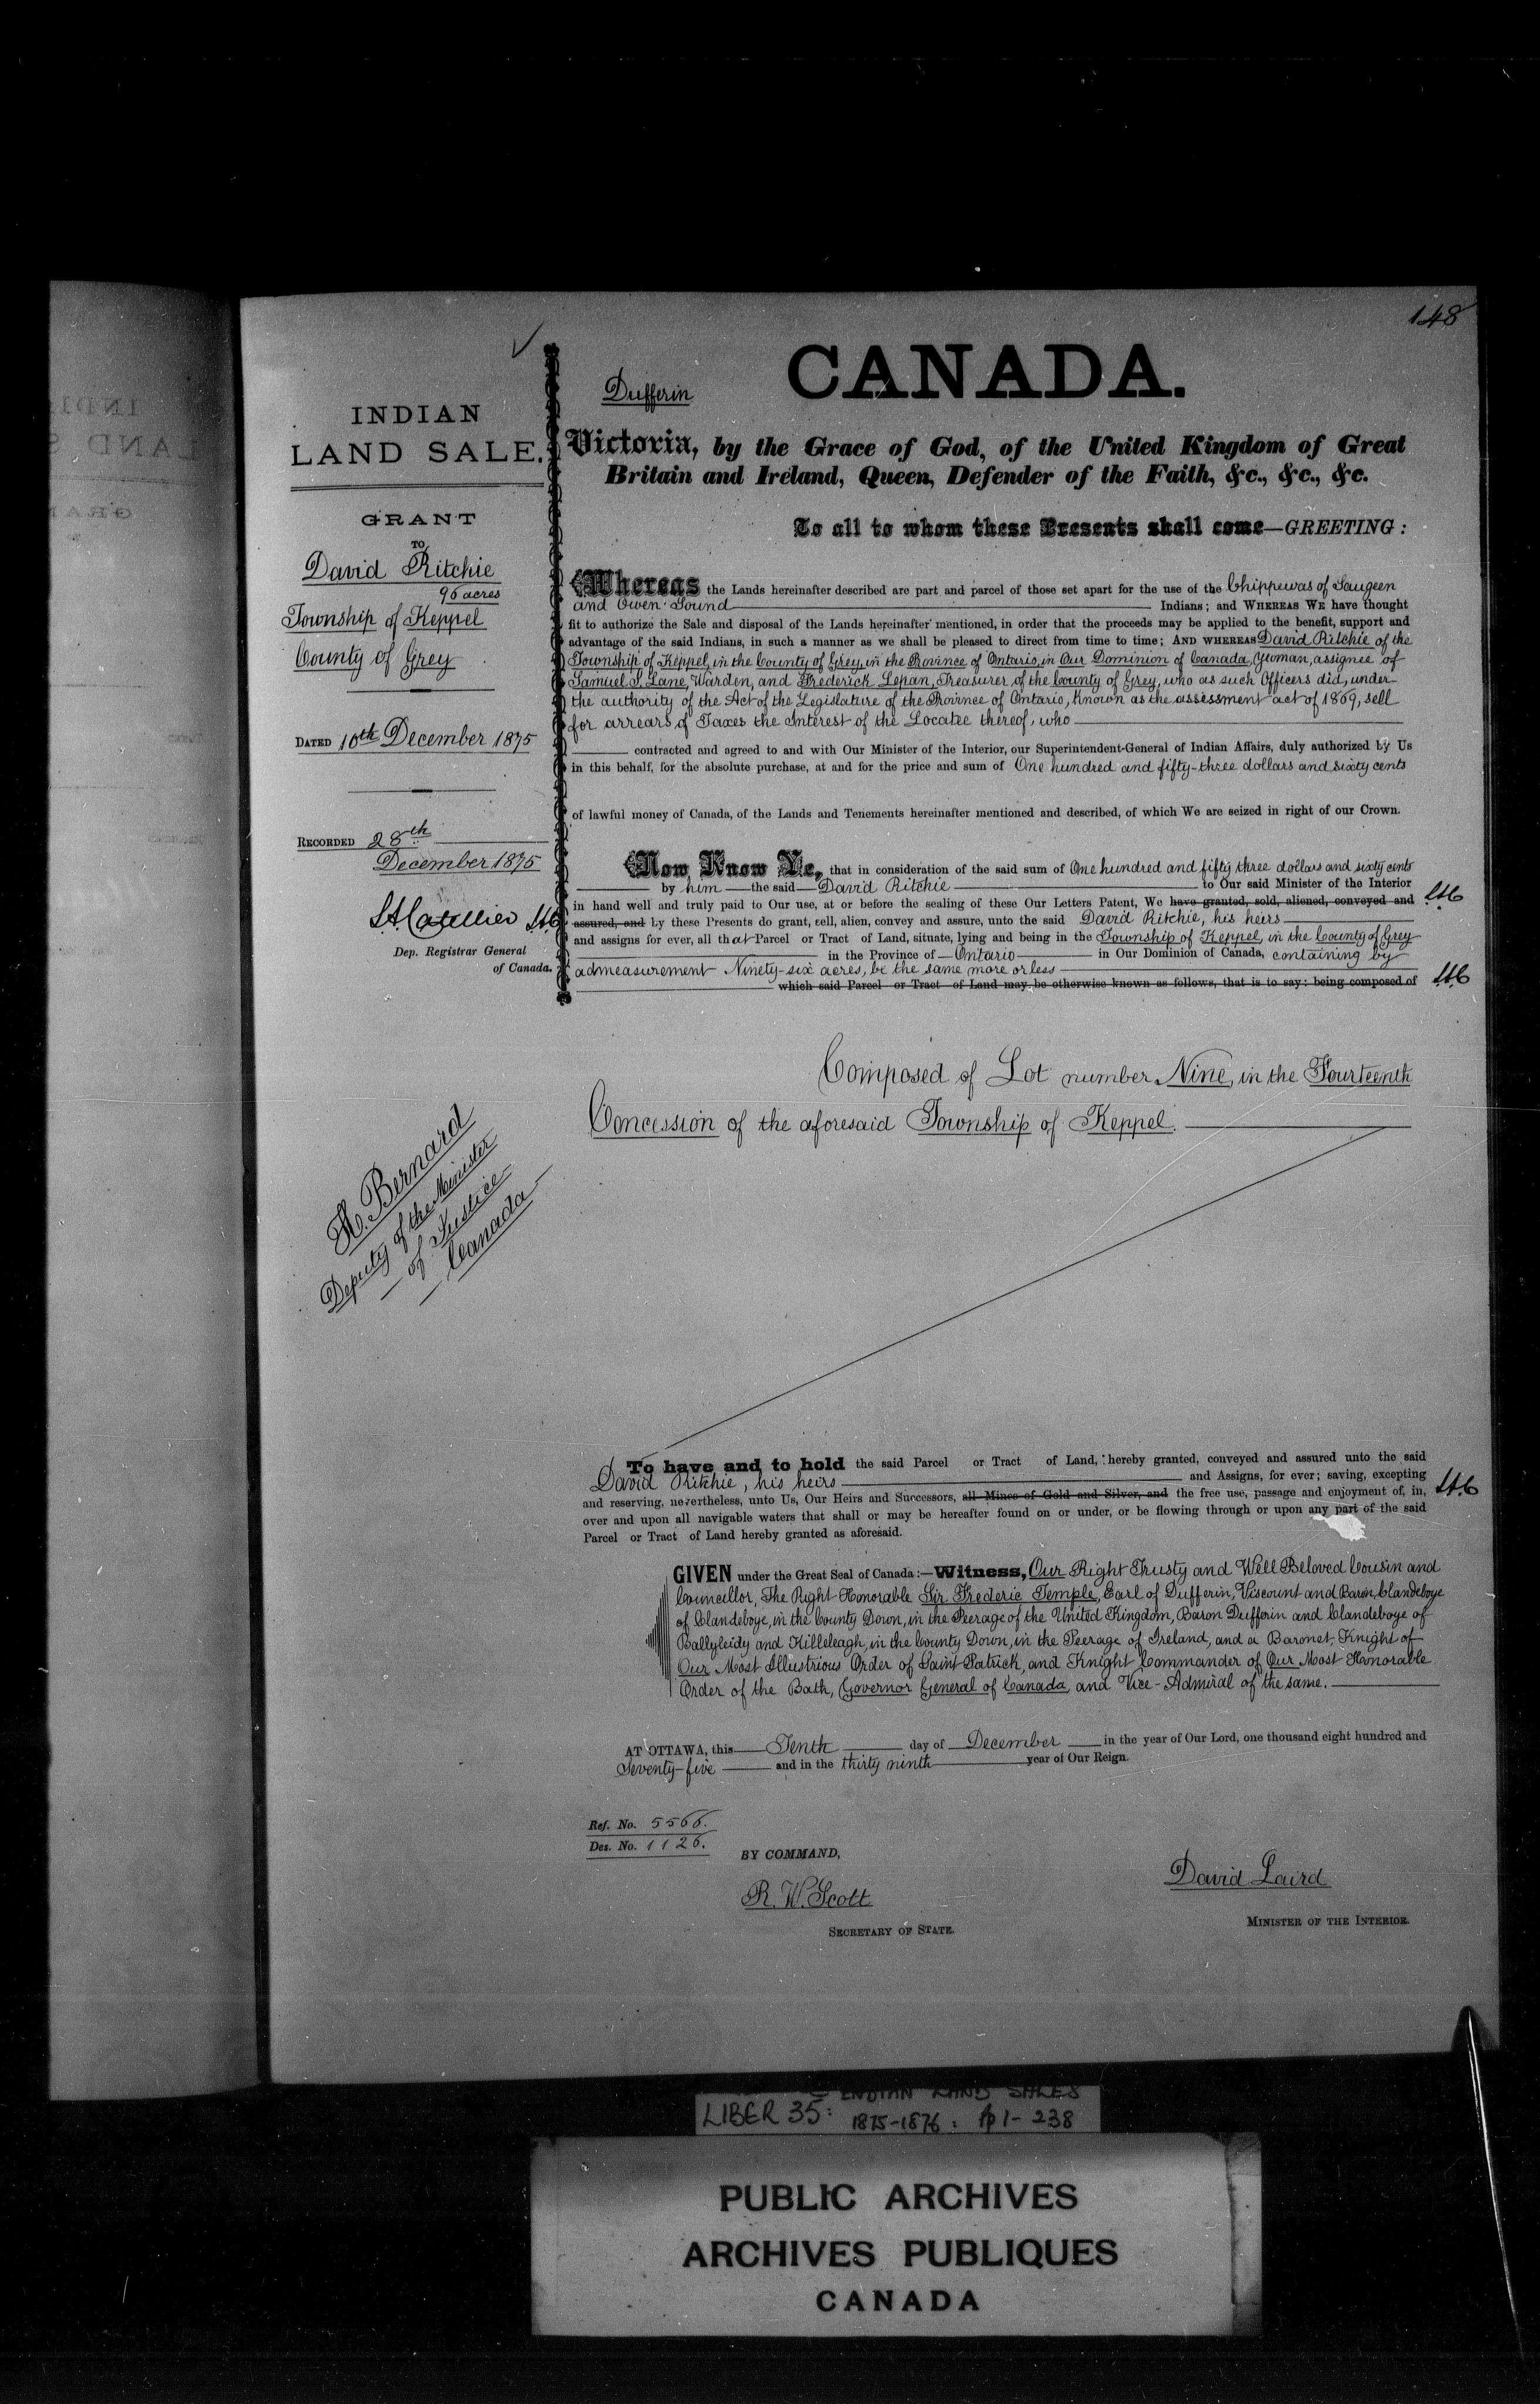 148
CANADA.
Dufferin
INDIAN
LAND SALE.
GRANT
TO
David Ritchie
96 acres
Township of Keppel
County of Grey
DATED 10th December 1875
RECORDED 28th
December 1875
Dep. Registrar General
of Canada.
H. Bernard
Deputy of the Minister
of Justice
Canada
Victoria, by the Grace of God, of the United Kingdom of Great
Britain and Ireland, Queen, Defender of the Faith, &c., &c., &c.
To all to whom these Presents shall come—GREETING:
Whereas the Lands hereinafter described are part and parcel of those set apart for the use of the Chippewas of Saugeen
and Owen Sound Indians; and WHEREAS WE have thought
fit to authorize the Sale and disposal of the Lands hereinafter mentioned, in order that the proceeds may be applied to the benefit, support and
advantage of the said Indians, in such a manner as we shall be pleased to direct from time to time; AND WHEREAS David Ritchie of the
Township of Keppel, in the County of Grey, in the Province of Ontario in Our Dominion of Canada, Yeoman, assignee of
Samuel J. Lane, Warden, and Frederick Lepan, Treasurer of the County of Grey, who as such Officers did, under
the authority of the Act of the Legislature of the Province of Ontario, known as the assessment act of 1869, sell
for arrears of Taxes the Interest of the Locatee thereof, who
contracted and agreed to and with Our Minister of the Interior, our Superintendent-General of Indian Affairs, duly authorized by Us
in this behalf, for the absolute purchase, at and for the price and sum of One hundred and fifty-three dollars and sixty cents
of lawful money of Canada, of the Lands and Tenements hereinafter mentioned and described, of which We are seized in right of our Crown.
Now Know Ye, that in consideration of the said sum of One hundred and fifty three dollars and sixty cents
by him the said David Ritchie to Our said Minister of the Interior
in hand well and truly paid to Our use, at or before the sealing of these Our Letters Patent, We have granted, sold, aliened, conveyed and
assured, and by these Presents do grant, sell, alien, convey and assure, unto the said David Ritchie, his heirs
and assigns for ever, all that Parcel or Tract of Land, situate, lying and being in the Township of Keppel, in the County of Grey
in the Province of Ontario in Our Dominion of Canada, containing by
admeasurement Ninety-six acres, be the same more or less
which said Parcel or Tract of Land may be otherwise known as follows, that is to say: being composed of
Composed of Lot number Nine, in the Fourteenth
Concession of the aforesaid Township of Keppel.
To have and to hold the said Parcel or Tract of Land, hereby granted, conveyed and assured unto the said
David Ritchie, his heirs and Assigns, for ever; saving, excepting
and reserving, nevertheless, unto Us, Our Heirs and Successors, all Mines of Gold and Silver, and the free use, passage and enjoyment of, in,
over and upon all navigable waters that shall or may be hereafter found on or under, or be flowing through or upon any part of the said
Parcel or Tract of Land hereby granted as aforesaid.
GIVEN under the Great Seal of Canada:—Witness, Our Right Trusty and Well Beloved Cousin and
Councillor, The Right Honorable Sir Frederic Temple, Earl of Dufferin, Viscount and Baron Clandeboye
of Clandeboye, in the County Down, in the Peerage of the United Kingdom, Baron Dufferin and Clandeboye of
Ballyleidy and Killeleagh, in the County Down, in the Peerage of Ireland, and a Baronet, Knight of
Our Most Illustrious Order of Saint Patrick, and Knight Commander of Our Most Honorable
Order of the Bath, Governor General of Canada, and Vice-Admiral of the same.
AT OTTAWA, this Tenth day of December in the year of Our Lord, one thousand eight hundred and
Seventy-five and in the thirty ninth year of Our Reign.
Ref. No. 5566.
Des. No. 1126.
BY COMMAND,
R. W. Scott
SECRETARY OF STATE.
David Laird
MINISTER OF THE INTERIOR.
INDIAN LAND SALES
LIBER 35: 1875-1876: pp 1-238
PUBLIC ARCHIVES
ARCHIVES PUBLIQUES
CANADA